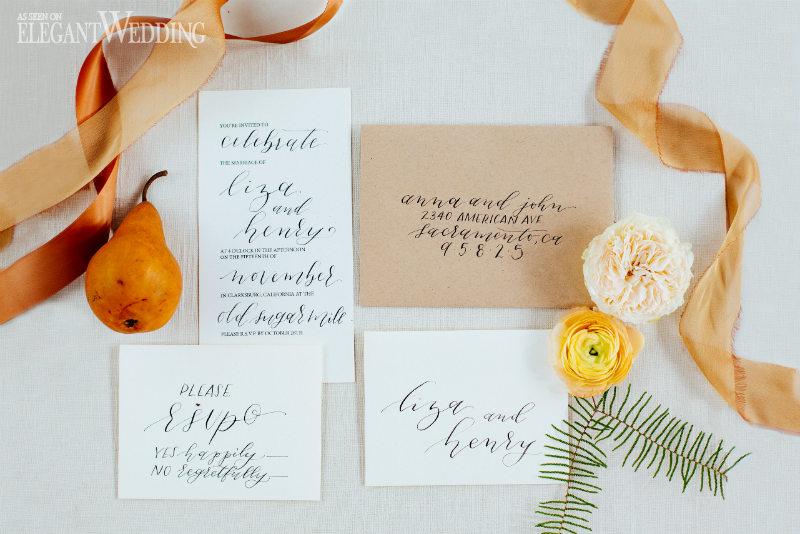 AS SEEN ON
ELEGANTWEDDING
YOU'RE INVITED TO
celebrate
THE MARRIAGE OF
liza
and
henry
AT 4 O'CLOCK IN THE AFTERNOON
ON THE FIFTEENTH OF
november
IN CLARKSBURG, CALIFORNIA AT THE
old sugar mill
PLEASE RSVP BY OCTOBER 25TH
anna and john
2340 AMERICAN AVE
sacramento, ca
95825
PLEASE
rsvp
YES happily
NO regretfully
liza and
henry